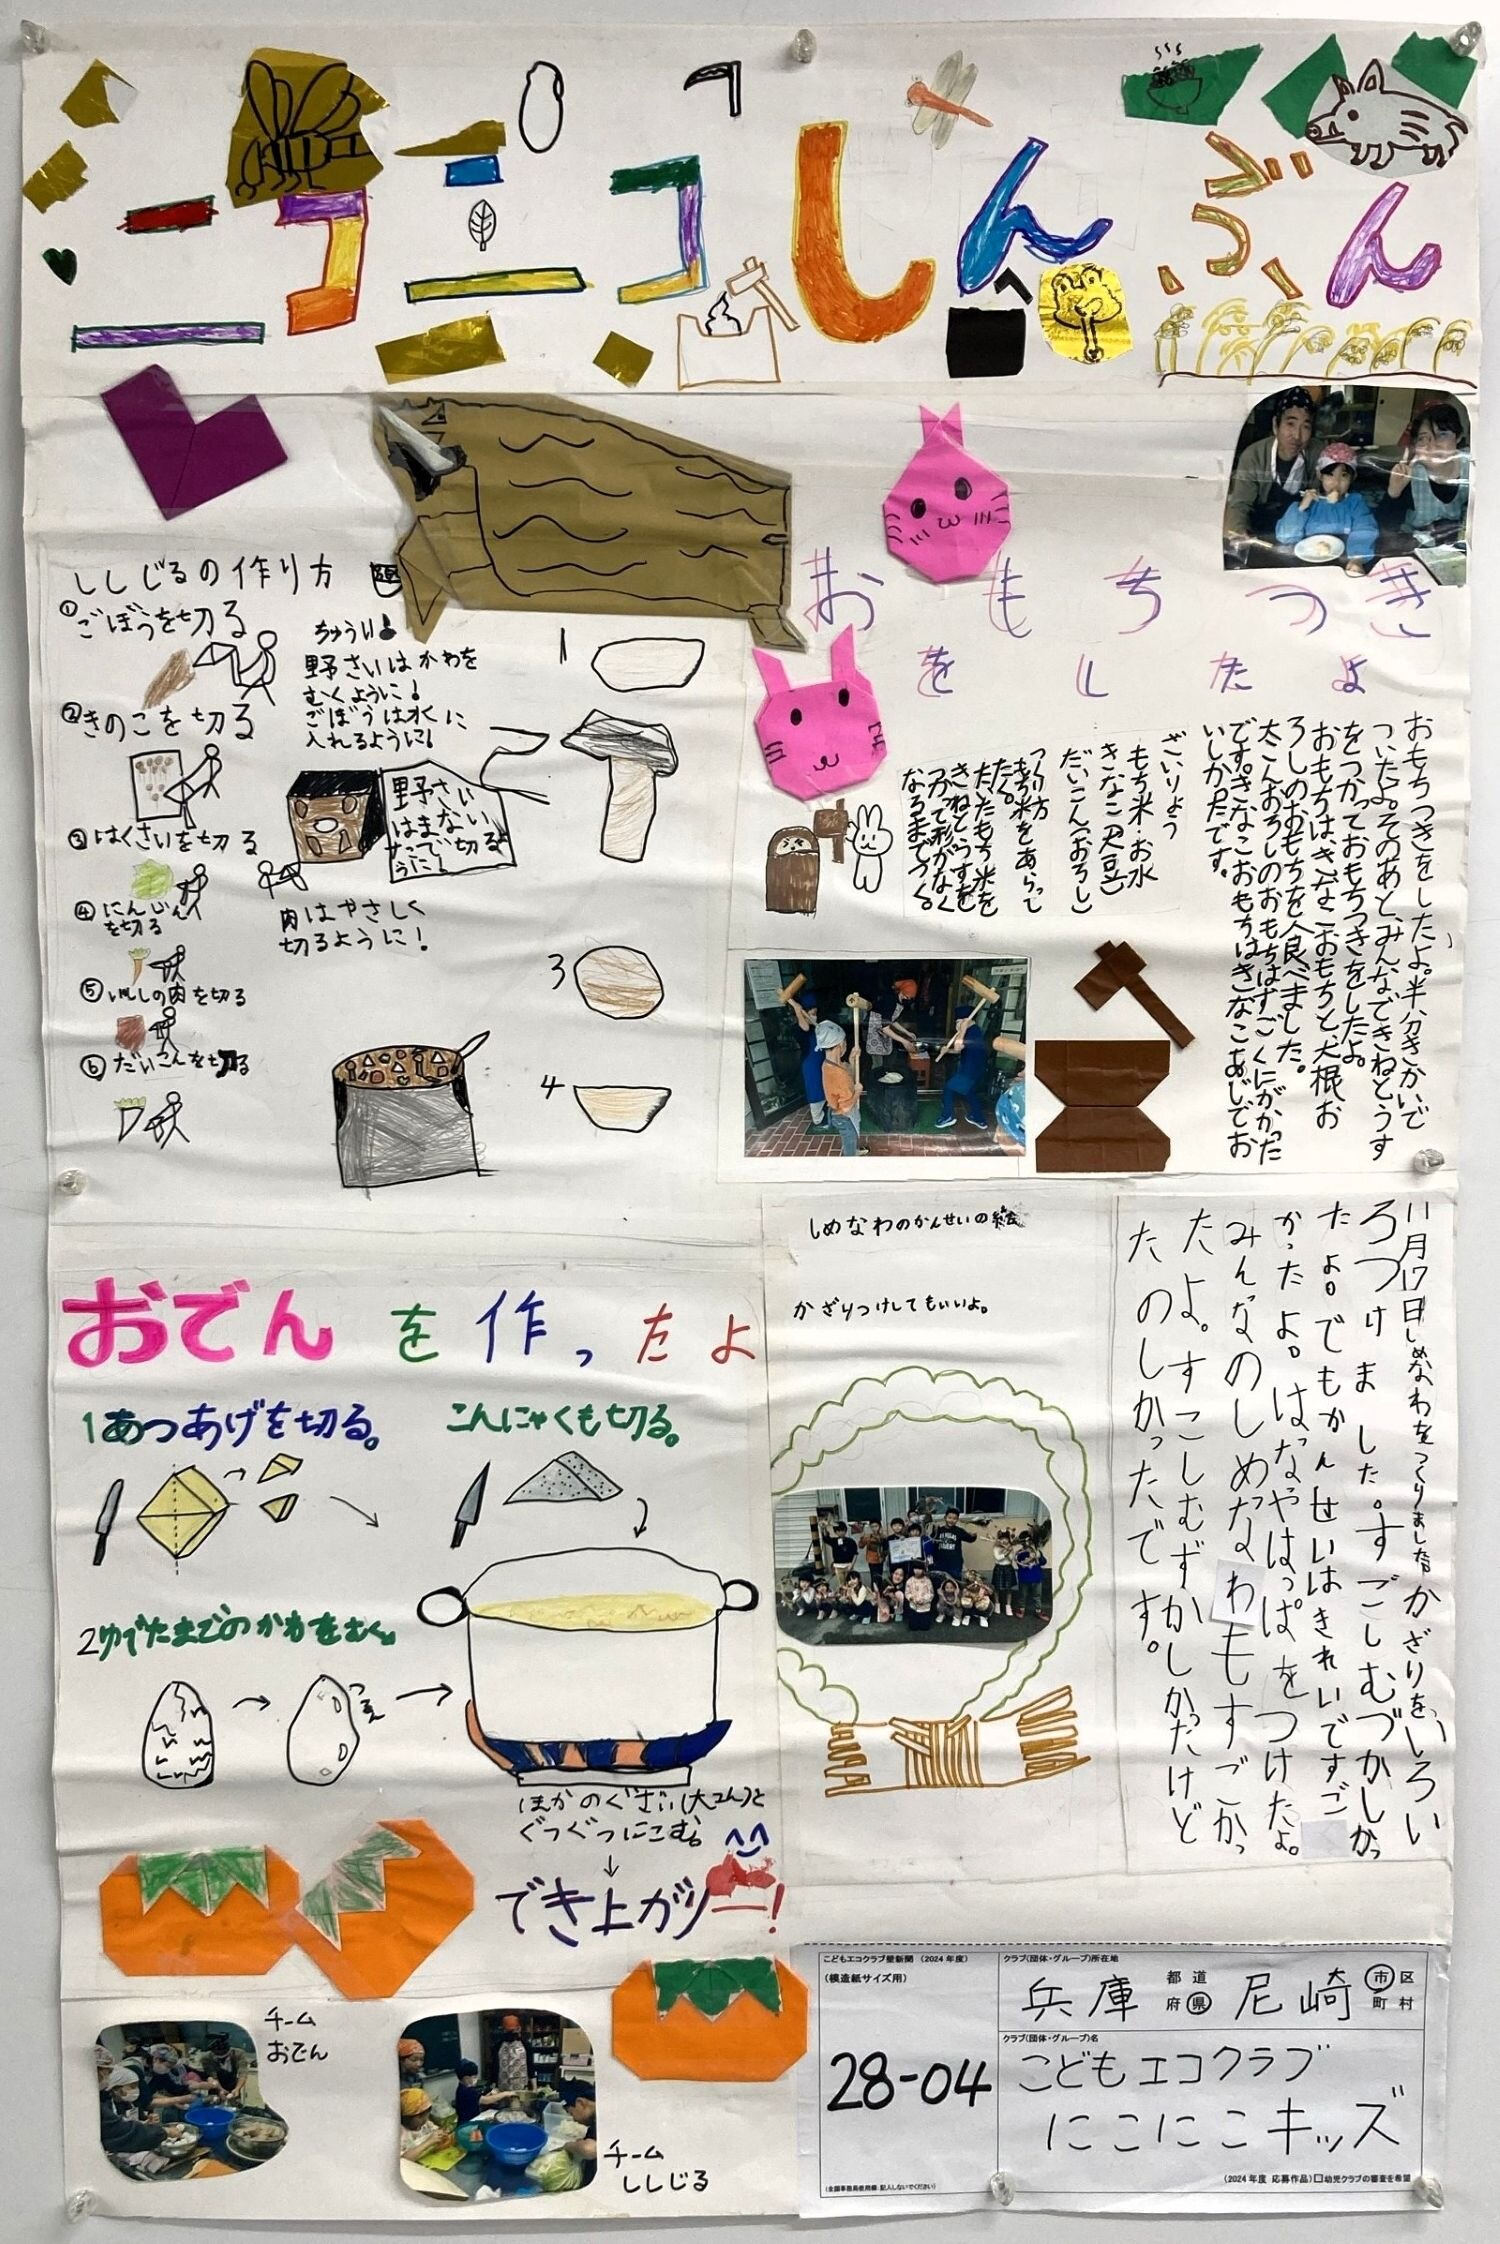 ニコニコしんぶん
ししじるの作り方
①ごぼうを切る
②きのこを切る
③はくさいを切る
④にんじん
を切る
⑤いのししの肉を切る
⑥だいこんを切る
ちゅうい!
野さいはかわを
むくように!
ごぼうは水に
入れるように!
野さい
はまない
たで切るよ
うに!
肉はやさしく
切るように!
1
3
4
おもちつき
をしたよ
おもちつきをしたよ。半分きかいで
ついたよ。そのあと、みんなできねとうす
をつかっておもちつきをしたよ。
おもちは、きなこおもちと、大根お
ろしのおもちを食べました。
大こんおろしのおもちはすごくにがかった
です。きなこおもちはきなこあじでお
いしかったです。
ざいりょう
もち米・お水
きなこ(大豆)
だいこん(おろし)
つくり方
もち米をあらって
たく。
たいたもち米を
きねとうすを
つかって形がなく
なるまでつく。
おでんを作ったよ
1あつあげを切る。
こんにゃくも切る。
2ゆでたまごのかわをむく。
つるん
ほかのぐざい(大こん)と
ぐつぐつにこむ。
でき上がりー!
しめなわのかんせいの絵
かざりつけしてもいいよ。
11月17日しめなわをつくりましたかざりをいろい
ろつけました。すごしむづかしかっ
たよ。でもかんせいはきれいですご
かったよ。はっなやはっぱをつけたよ。
みんなのしめなわもすごかっ
たよ。すこしむずかしかったけど
たのしかったです。
チーム
おでん
チーム
ししじる
こどもエコクラブ壁新聞(2024年度)
(模造紙サイズ用)
28-04
(全国事務局使用欄:記入しないでください)
クラブ(団体・グループ)所在地
兵庫 都道府県 尼崎 市区町村
クラブ(団体・グループ)名
こどもエコクラブ
にこにこキッズ
(2024年度 応募作品)□幼児クラブの審査を希望